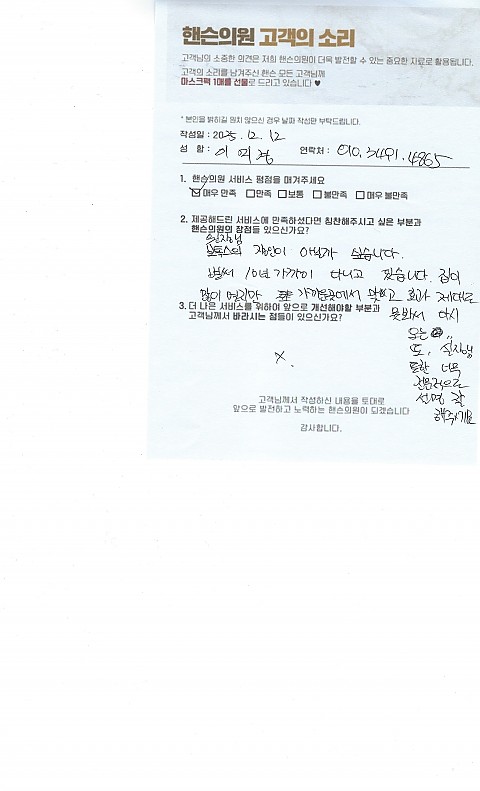 핸슨의원 고객의 소리
고객님의 소중한 의견은 저희 핸슨의원이 더욱 발전할 수 있는 중요한 자료로 활용됩니다.
고객의 소리를 남겨주신 핸슨 모든 고객님께
마스크팩 1매를 선물로 드리고 있습니다 ♥
* 본인을 밝히길 원치 않으신 경우 날짜 작성만 부탁드립니다.
작성일 : 2025. 12. 12
성 함 : 이 연락처 : 010. 3491. 4865
1. 핸슨의원 서비스 평점을 매겨주세요
☑ 매우 만족 □ 만족 □ 보통 □ 불만족 □ 매우 불만족
2. 제공해드린 서비스에 만족하셨다면 칭찬해주시고 싶은 부분과
핸슨의원의 장점들 있으신가요?
원장님
보톡스의 장인이 아닌가 싶습니다.
벌써 10년 가까이 다니고 있습니다. 집이
많이 멀지만 가까운곳에서 맞았고 효과 제대로
못봐서 다시
오는
또, 실장님
또한 너무
전문적으로
설명 잘
해주세요
3. 더 나은 서비스를 위하여 앞으로 개선해야할 부분과
고객님께서 바라시는 점들이 있으신가요?
X.
고객님께서 작성하신 내용을 토대로
앞으로 발전하고 노력하는 핸슨의원이 되겠습니다
감사합니다.